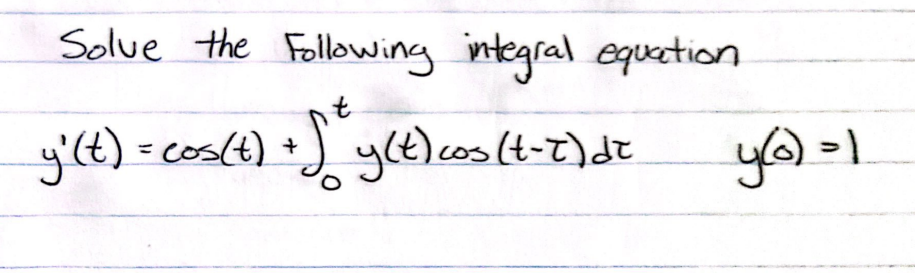 Solve the following integral equation
y'(t) = cos(t) + ∫₀ᵗ y(t) cos(t-τ) dτ    y(0) = 1